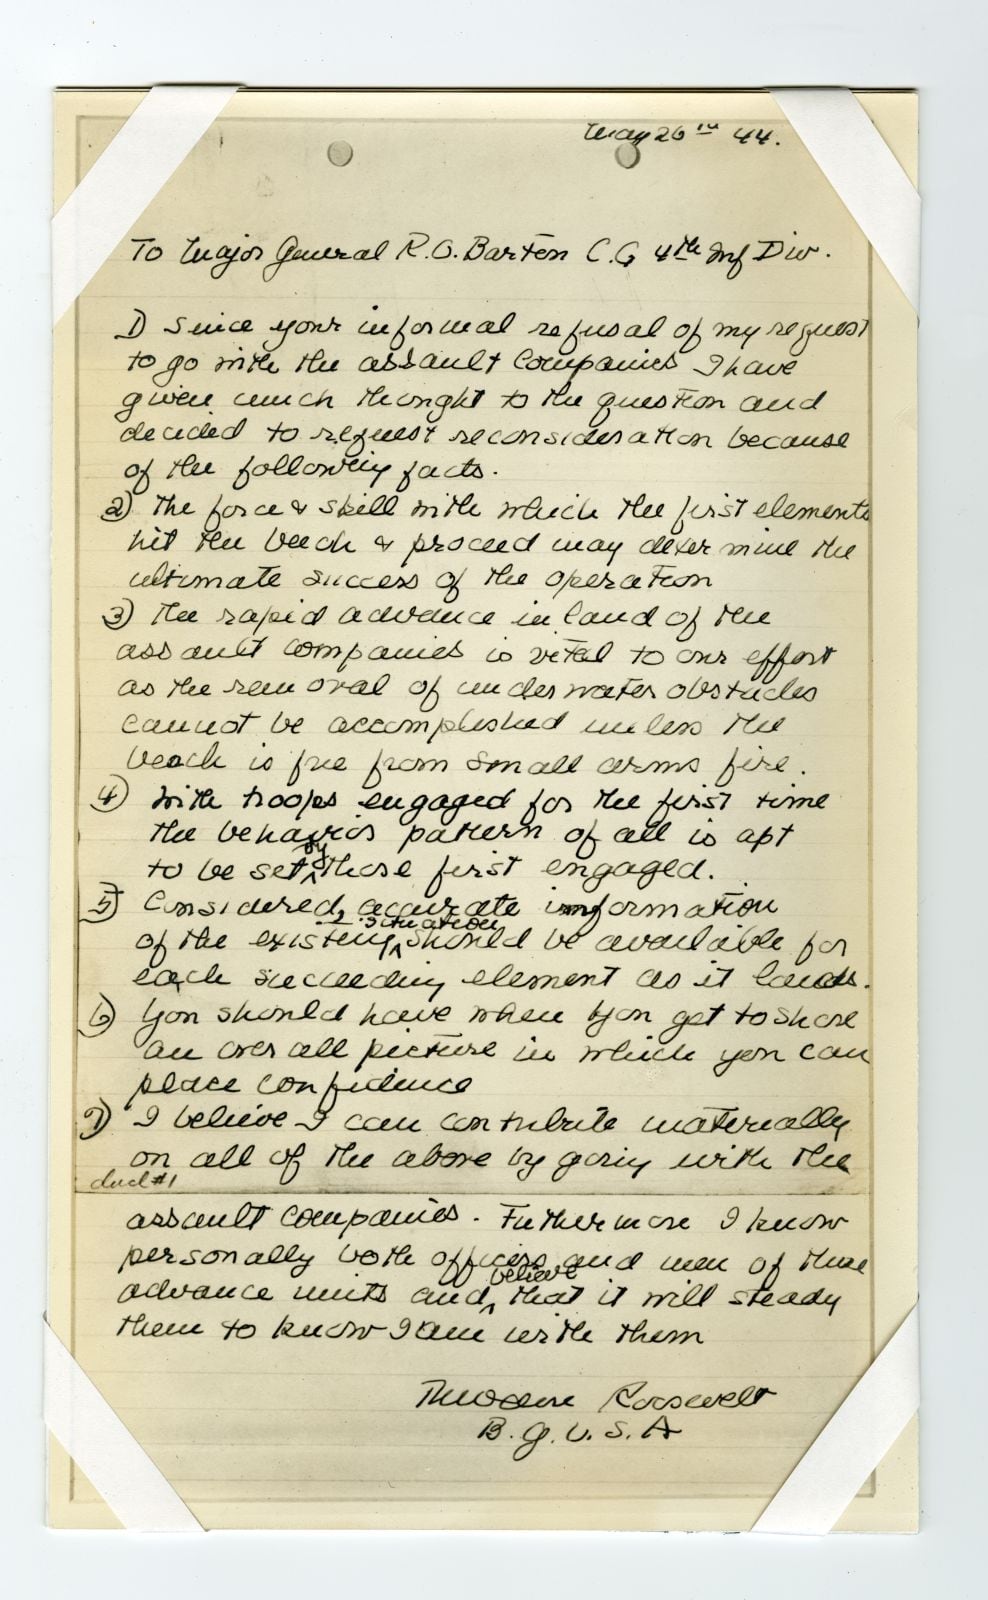 May 26th 44.
To Major General R.O. Barton C.G 4th Inf Div.
1) Since your informal refusal of my request
to go with the assault Companies I have
given much thought to the question and
decided to request reconsideration because
of the following facts.
2) The force & skill with which the first elements
hit the beach & proceed may determine the
ultimate success of the operation
3) The rapid advance inland of the
assault companies is vital to our effort
as the removal of underwater obstacles
cannot be accomplished unless the
beach is free from small arms fire.
4) With troops engaged for the first time
the behavior pattern of all is apt
to be set by those first engaged.
5) Considered, accurate information
of the existing situation should be available for
each succeeding element as it lands.
6) You should have when you get to shore
an over all picture in which you can
place confidence
7) I believe I can contribute materially
on all of the above by going with the
incl #1
assault companies. Futhermore I know
personally both officers and men of these
advance units and believe that it will steady
them to know I am with them
Theodore Roosevelt
B.G.U.S.A